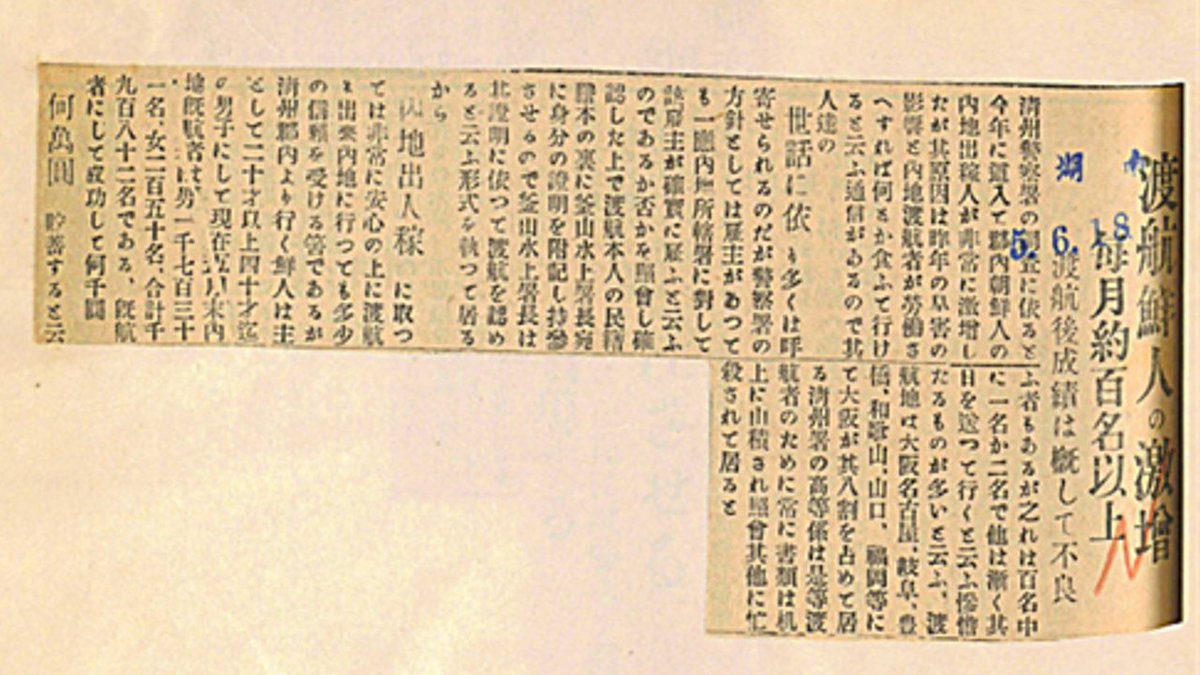 渡航鮮人の激増
毎月約百名以上
渡航後成績は概して不良
湖
5. 6. 18
清州警察署の調査に依ると
今年に這入て郡内朝鮮人の
内地出稼人が非常に激増し
たが其原因は昨年の旱害の
影響と内地渡航者が労働さ
へすれば何とか食ふて行け
ると云ふ通信があるので其
人達の
世話に依り多くは呼
寄せられるのだが警察署の
方針としては雇主があつて
も一応内地所轄署に対して
該雇主が確実に雇ふと云ふ
のであるか否かを照會し確
認した上で渡航本人の民籍
謄本の裏に釜山水上署長宛
に身分の證明を附記し持參
させるので釜山水上署長は
此證明に依つて渡航を認め
ると云ふ形式を執つて居る
から
内地出人稼に取つ
ては非常に安心の上に渡航
し出來内地に行つても多少
の信頼を受ける筈であるが
清州郡内より行く鮮人は主
として二十才以上四十才迄
の男子にして現在五月末内
地既航者は男一千七百三十
一名、女二百五十名、合計千
九百八十二名である、既航
者にして成功して何千圓
何萬圓 貯蓄すると云
ふ者もあるが之れは百名中
に一名か二名で他は漸く其
日を送つて行くと云ふ慘憺
たるものが多いと云ふ、渡
航地は大阪名古屋、岐阜、豊
橋、和歌山、山口、福岡等に
て大阪が其八割を占めて居
る清州署の高等係は是等渡
航者のために常に書類は机
上に山積され照會其他に忙
殺されて居ると